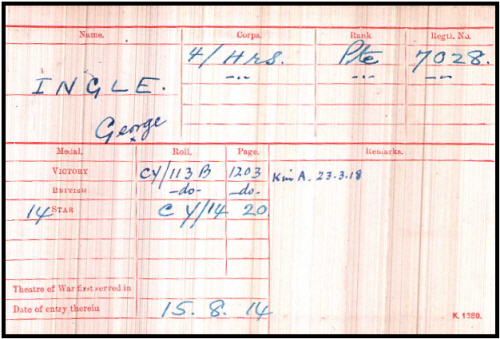 Name. Corps. Rank Regtl. No.
4/Hrs. Pte 7028.
INGLE. -..- -..- -..-
George
Medal. Roll. Page. Remarks.
VICTORY CY/113B 1203 K in A. 23.3.18
BRITISH -do- -do-
14 STAR CY/14 20
Theatre of War first served in
Date of entry therein 15.8.14
K. 1380.